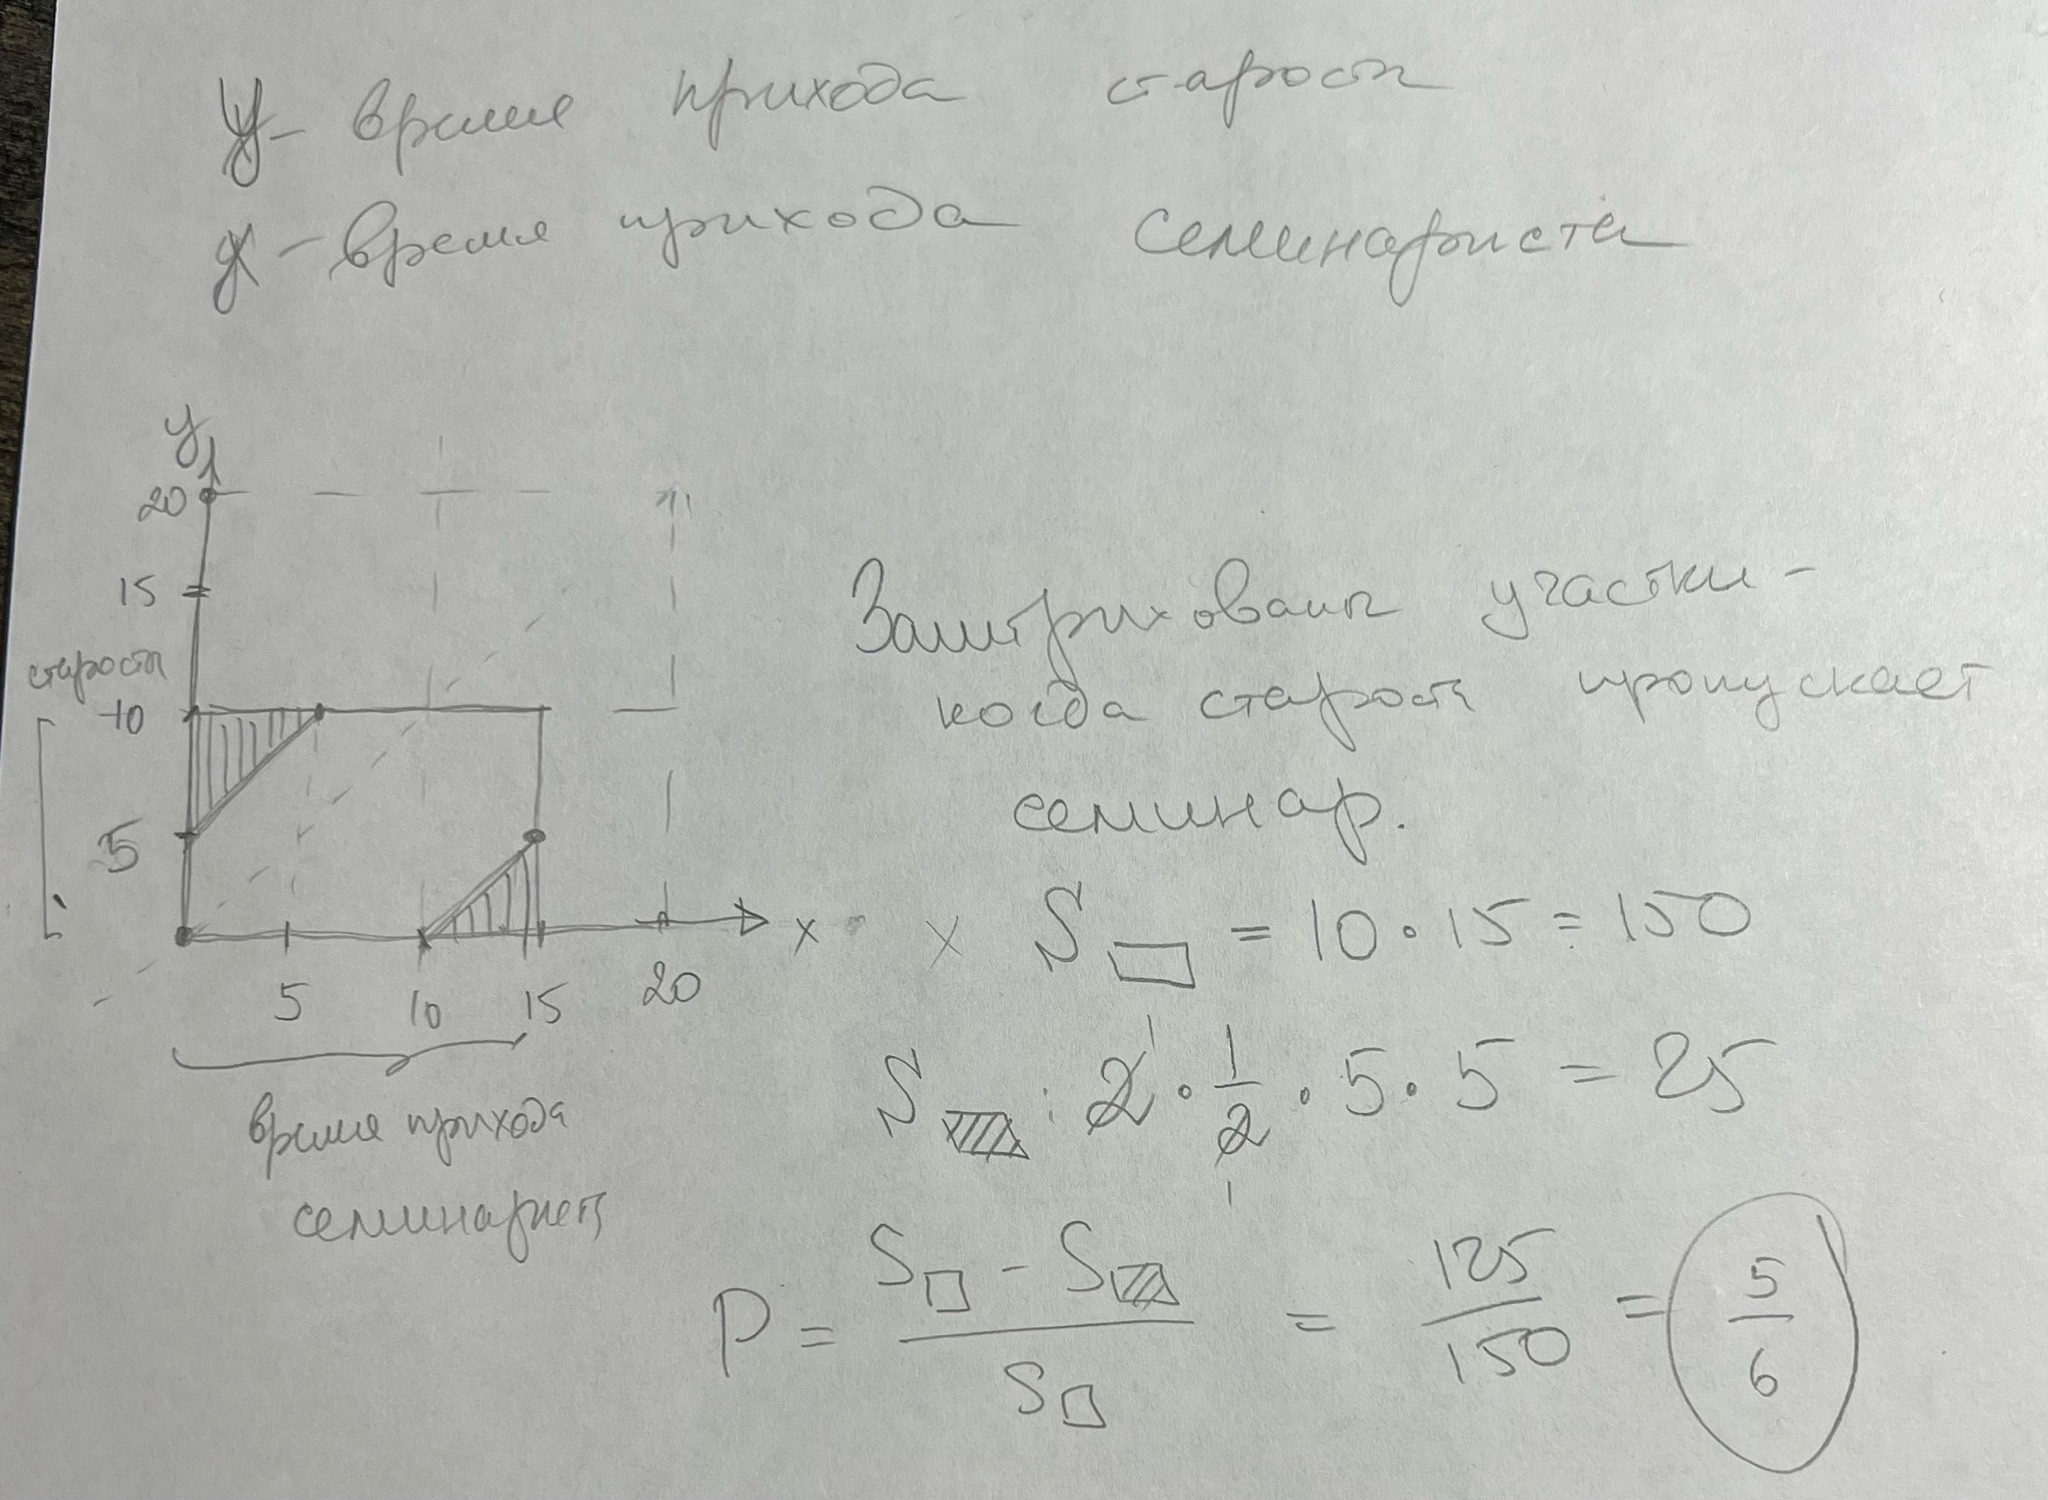 y - время прихода старосты
x - время прихода семинариста
y
20
15
старосты
10
5
5 10 15 20 x
время прихода
семинариста
Заштрихованы участки -
когда староста пропускает
семинар.
x S▭ = 10 · 15 = 150
S▨ : 2 · 1/2 · 5 · 5 = 25
P = (S□ - S▨)/S□ = 125/150 = 5/6